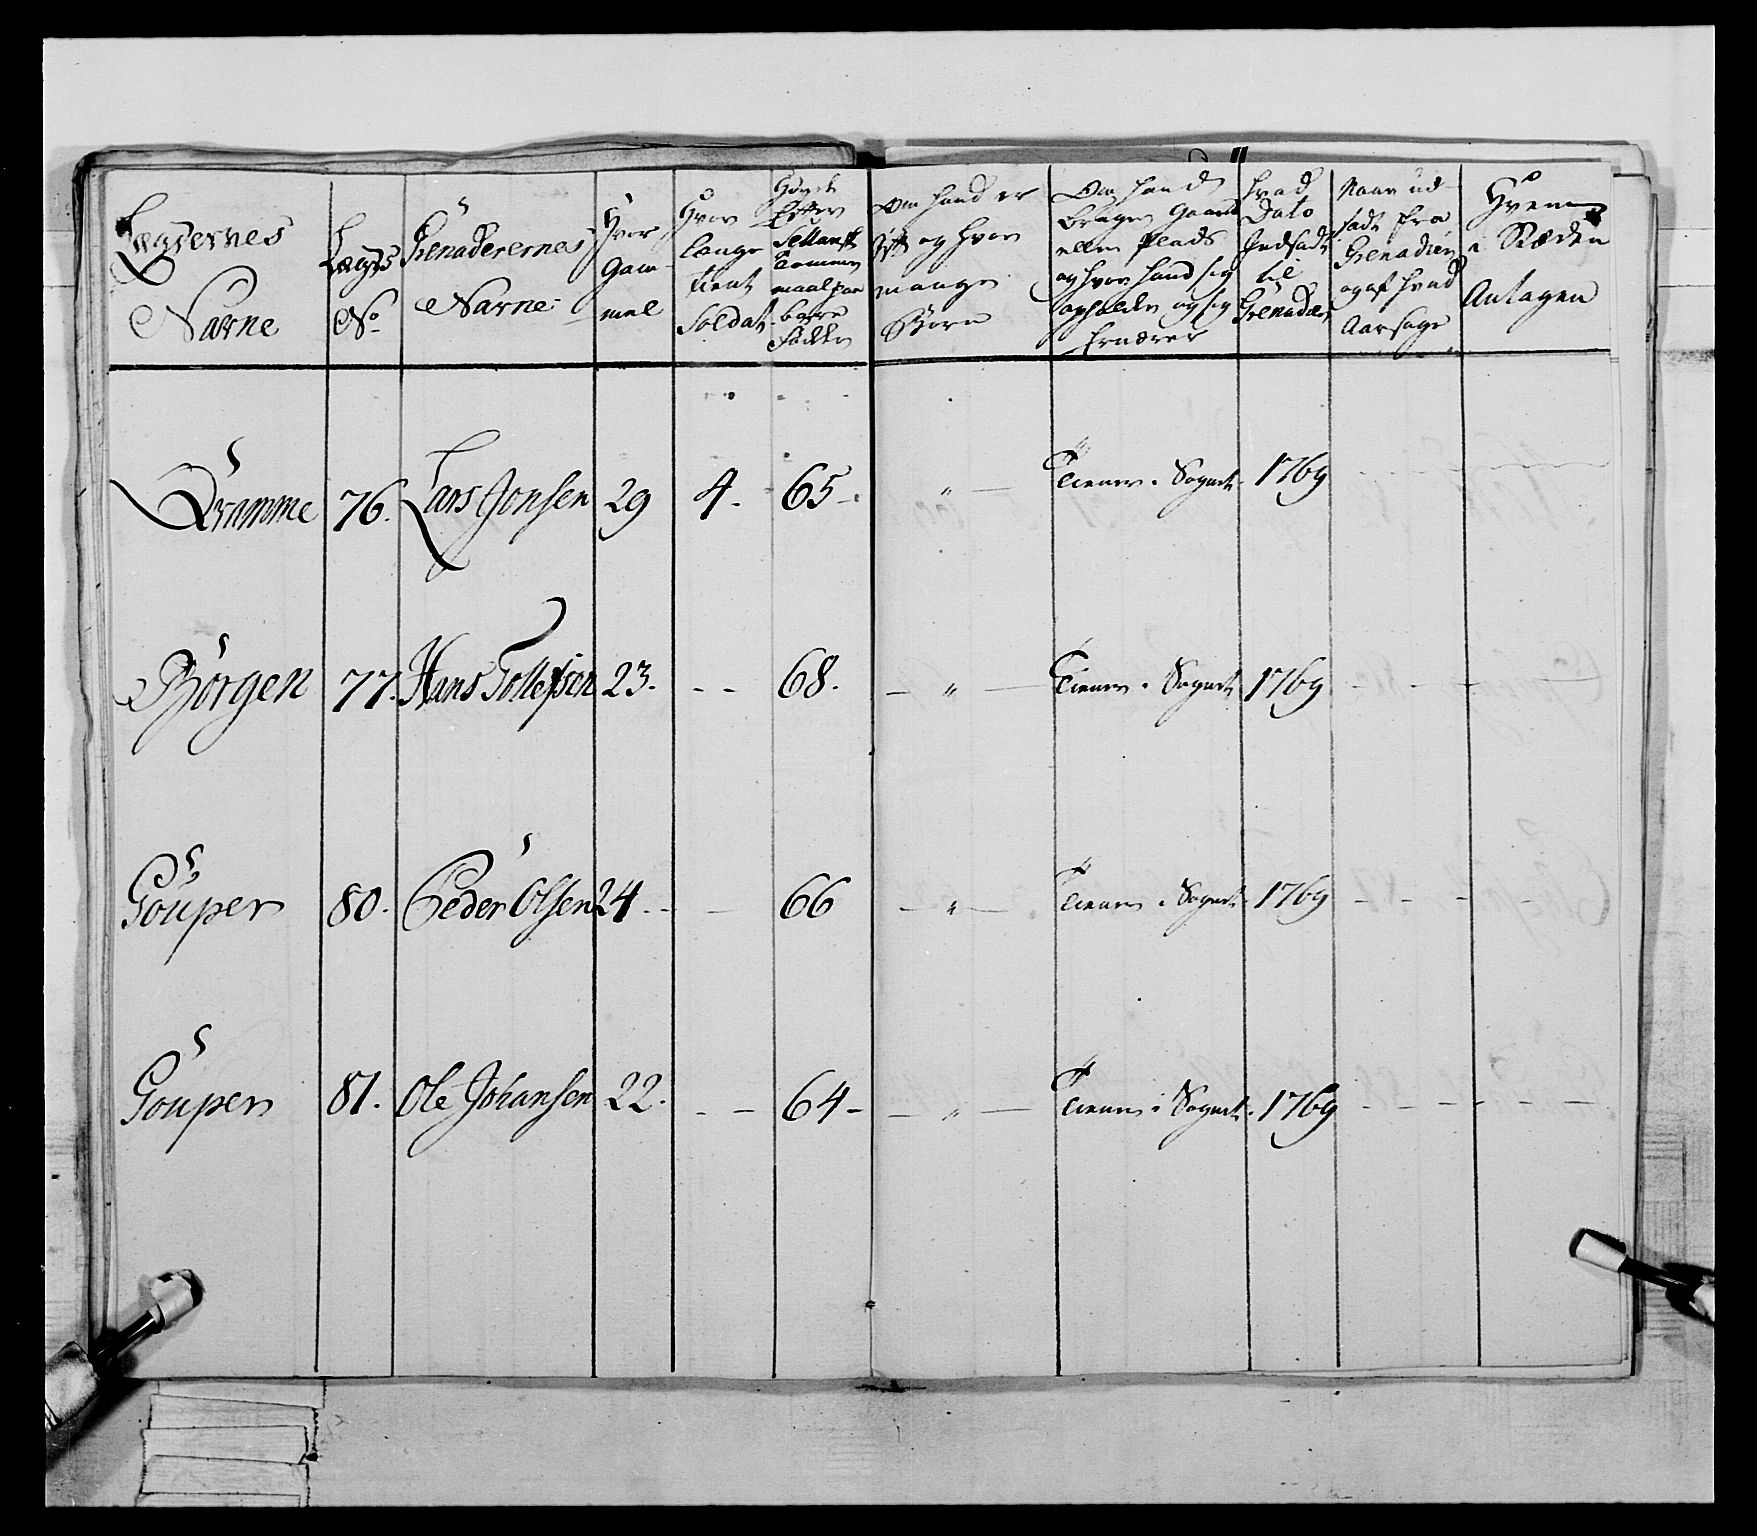 Lægdernes
Navne
Lægds
No
Grenaderernes
Navne
Hvor
Gam-
mel
Hvor
længe
tient
Soldat
Høyde
Efter
Sellands
Tomme
maal paa
bare
Fødder
Om hand er
gift og hvor
mange
Børn
Om hand
bruger Gaard
eller Plads
og hvor hand sig
opholder og sig
Ernærer
hvad
Dato
Indsadt
til
Grenader
Naar ud-
sadt fra
Grenadier
og af hvad
Aarsage
Hvem
i Stæden
Antagen
Dramme 76. Lars Jonsen 29 4. 65 - " - Tiener i Sognet. 1769
Børgen 77. Hans Tollefsen 23. - - 68. - " - Tiener i Sognet 1769 - - - -
Gouper 80. Peder Olsen 24. - - 66 - " - Tiener i Sognet. 1769 - - - -
Gouper 81. Ole Johansen 22. - - 64 - - " - Tiener i Sognet. 1769 - - - - -